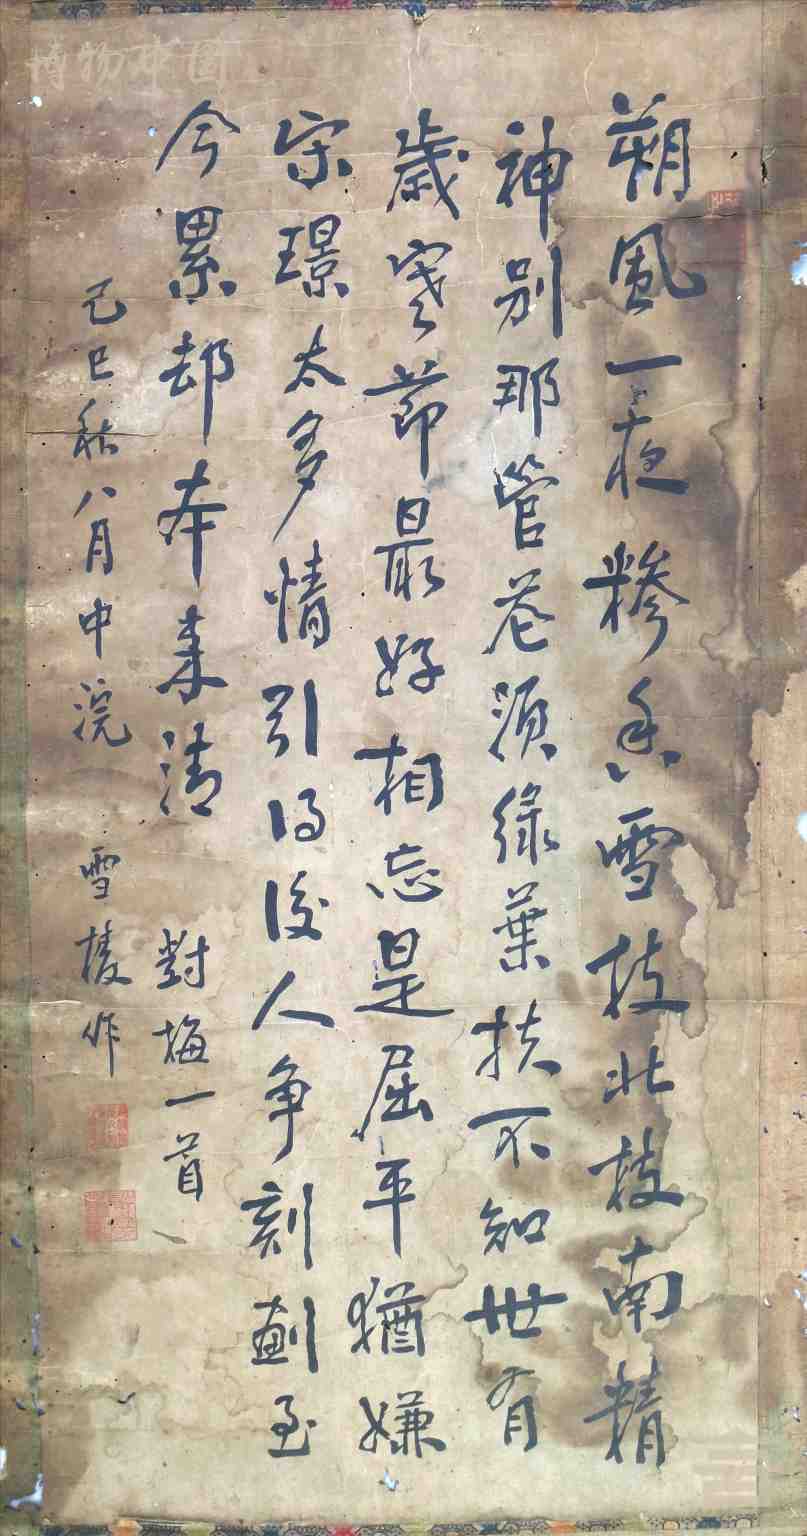 朔風一夜糝香雪枝北枝南精
神別那管花須綠葉扶不知世有
歲寒節最好相忘是屈平猶嫌
宋璟太多情引得後人爭刻劃至
今累却本來清 對梅一首
己巳秋八月中浣 雪樓作
博物